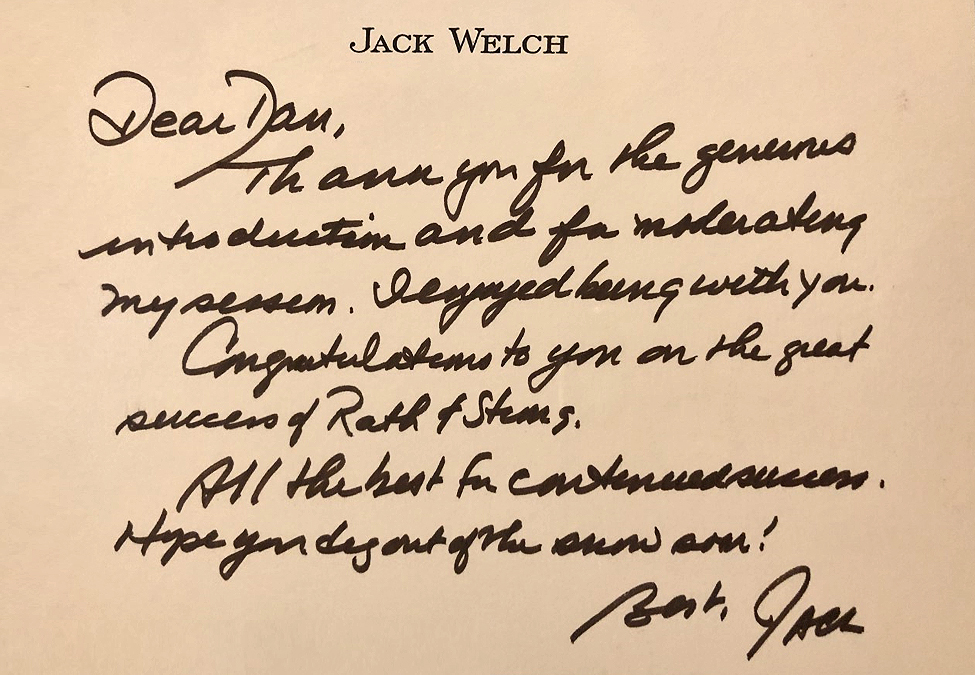 JACK WELCH
Dear Dan,
Thank you for the generous
introduction and for moderating
my session. I enjoyed being with you.
Congratulations to you on the great
success of Rath & Strong.
All the best for continued success.
Hope you dig out of the snow soon!
Best, Jack